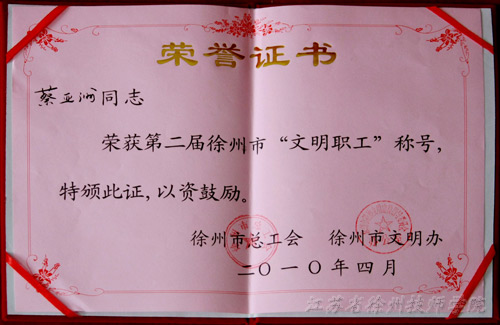 荣誉证书
蔡亚洲同志
荣获第二届徐州市“文明职工”称号，
特颁此证，以资鼓励。
徐州市总工会 徐州市文明办
二〇一〇年四月
江苏省徐州技师学院